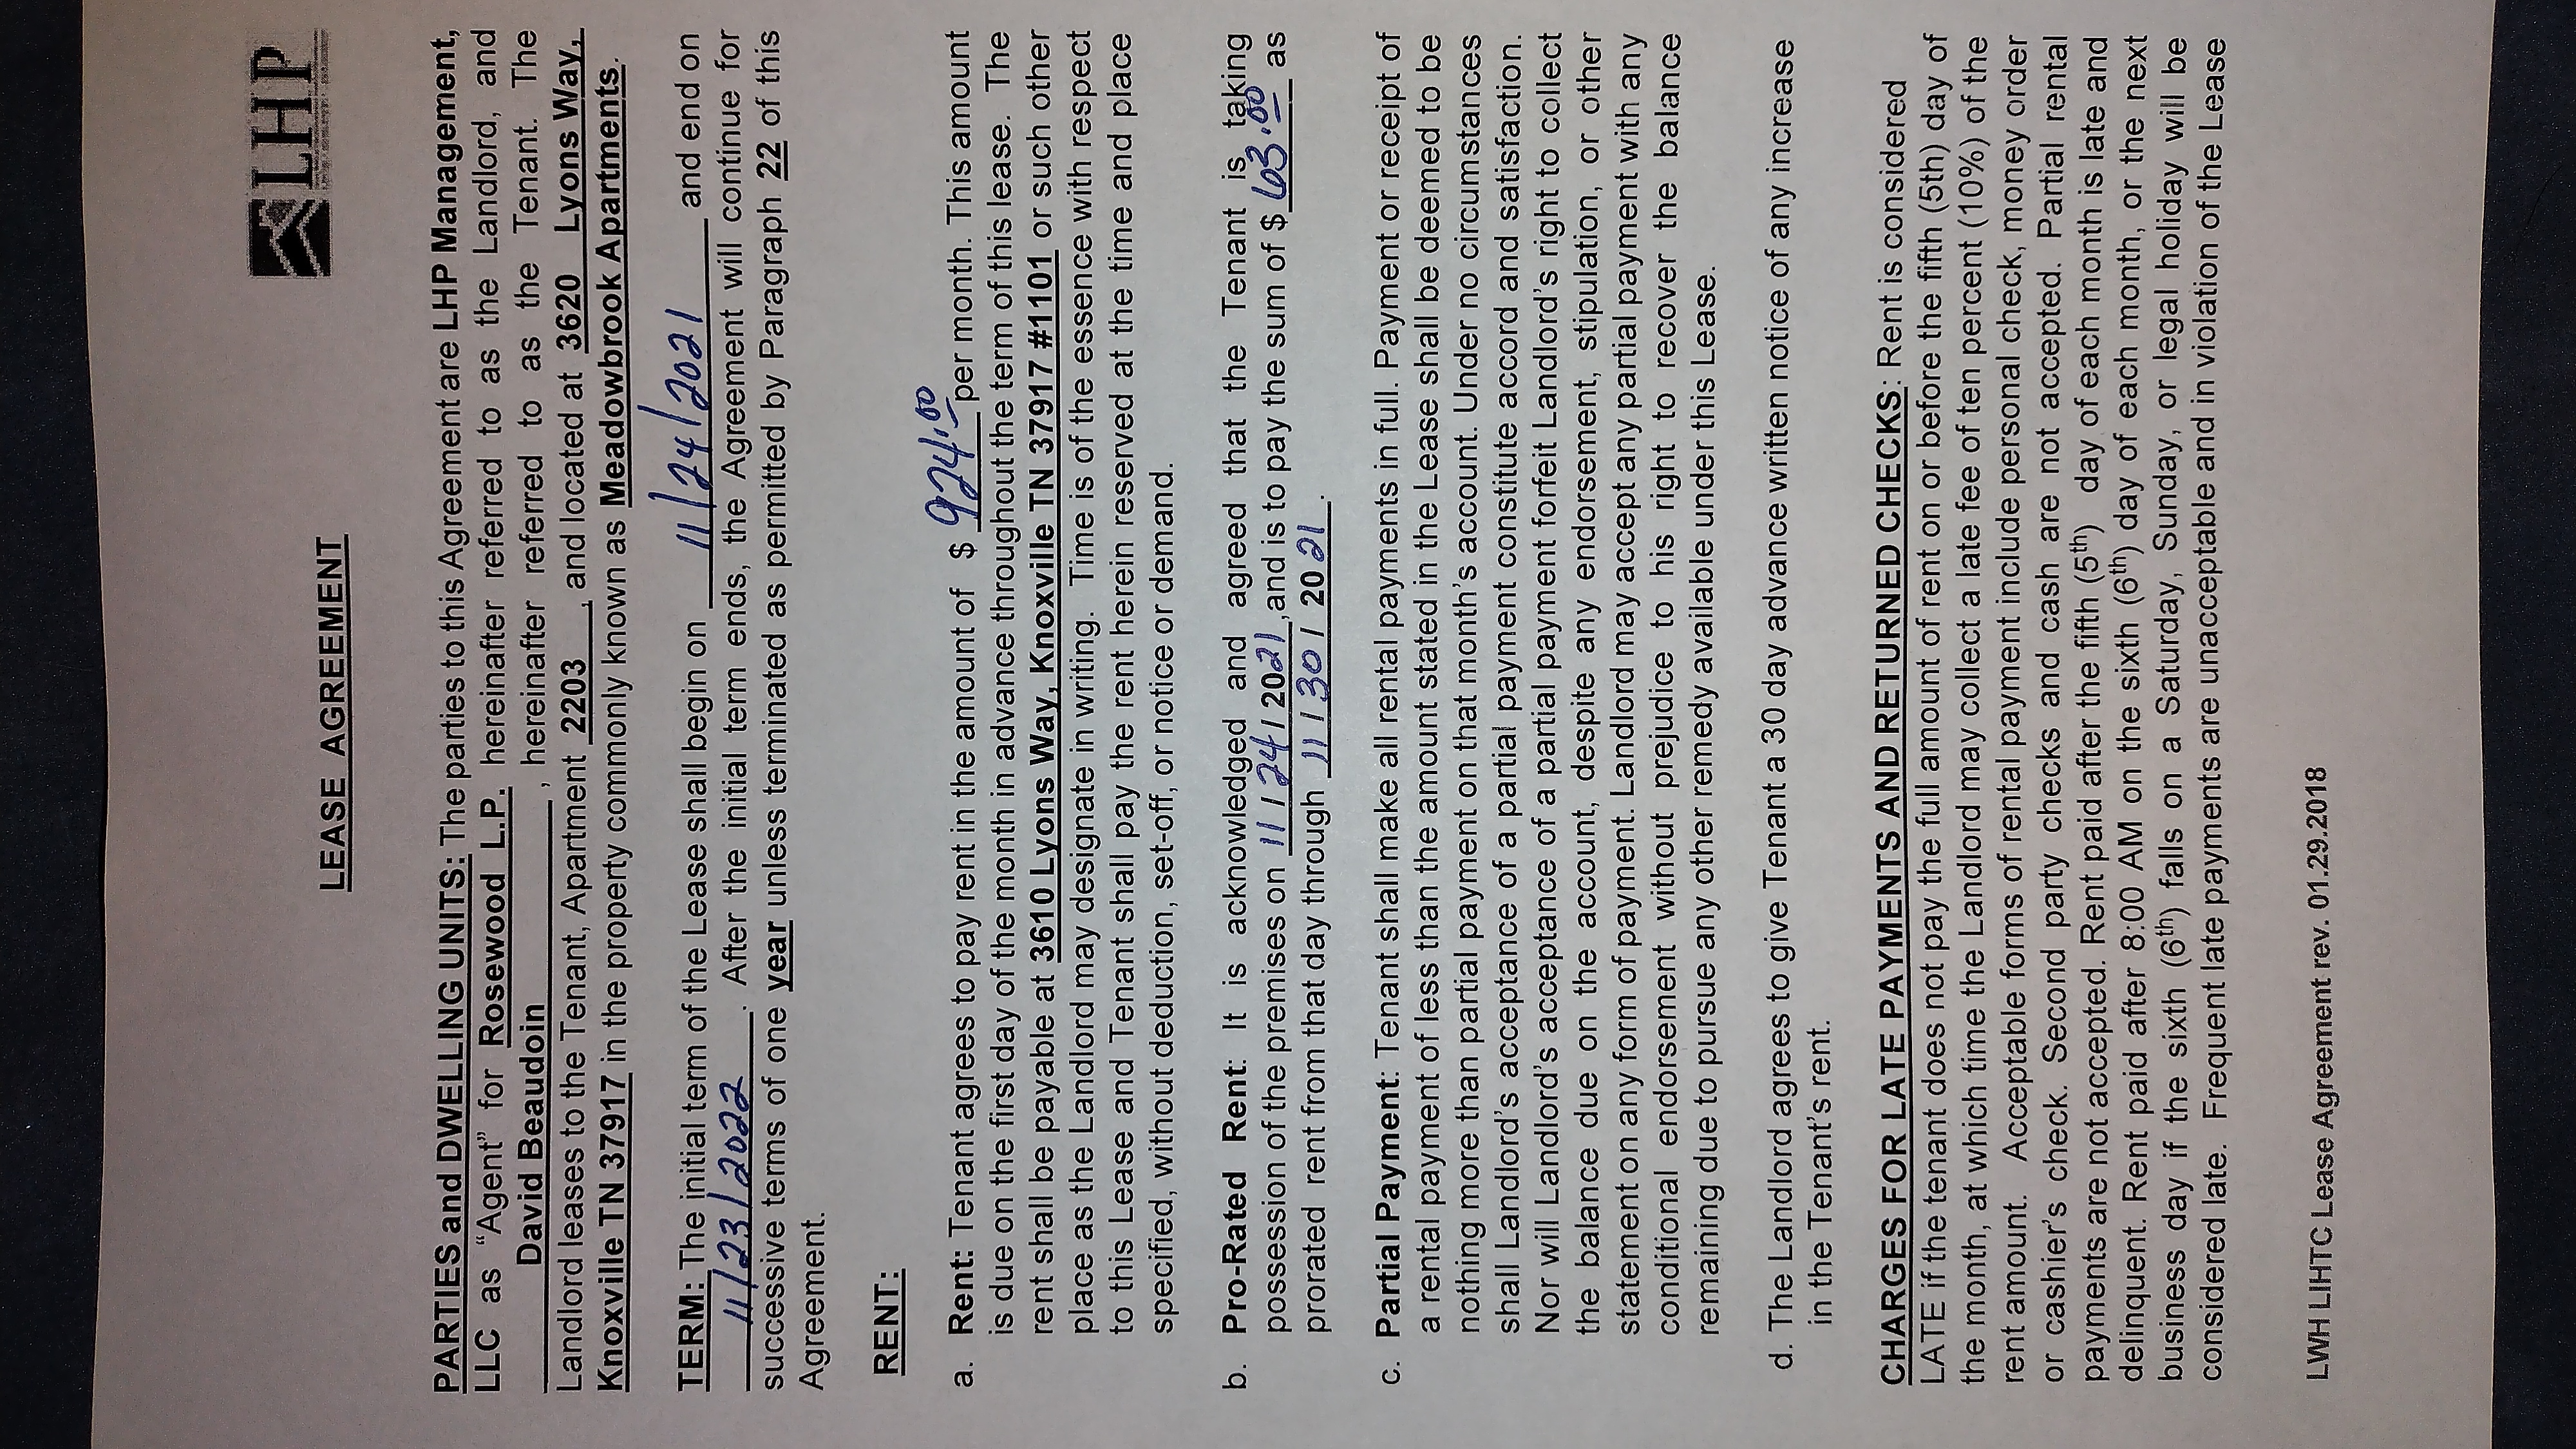 LHP
LEASE AGREEMENT
PARTIES and DWELLING UNITS: The parties to this Agreement are LHP Management,
LLC as “Agent” for Rosewood L.P. hereinafter referred to as the Landlord, and
David Beaudoin , hereinafter referred to as the Tenant. The
Landlord leases to the Tenant, Apartment 2203 , and located at 3620 Lyons Way,
Knoxville TN 37917 in the property commonly known as Meadowbrook Apartments.
TERM: The initial term of the Lease shall begin on 11/24/2021 and end on
11/23/2022 . After the initial term ends, the Agreement will continue for
successive terms of one year unless terminated as permitted by Paragraph 22 of this
Agreement.
RENT:
a. Rent: Tenant agrees to pay rent in the amount of $ 924.00 per month. This amount
is due on the first day of the month in advance throughout the term of this lease. The
rent shall be payable at 3610 Lyons Way, Knoxville TN 37917 #1101 or such other
place as the Landlord may designate in writing. Time is of the essence with respect
to this Lease and Tenant shall pay the rent herein reserved at the time and place
specified, without deduction, set-off, or notice or demand.
b. Pro-Rated Rent: It is acknowledged and agreed that the Tenant is taking
possession of the premises on 11 / 24 / 2021, and is to pay the sum of $ 63.00 as
prorated rent from that day through 11 / 30 / 2021.
c. Partial Payment: Tenant shall make all rental payments in full. Payment or receipt of
a rental payment of less than the amount stated in the Lease shall be deemed to be
nothing more than partial payment on that month’s account. Under no circumstances
shall Landlord’s acceptance of a partial payment constitute accord and satisfaction.
Nor will Landlord’s acceptance of a partial payment forfeit Landlord’s right to collect
the balance due on the account, despite any endorsement, stipulation, or other
statement on any form of payment. Landlord may accept any partial payment with any
conditional endorsement without prejudice to his right to recover the balance
remaining due to pursue any other remedy available under this Lease.
d. The Landlord agrees to give Tenant a 30 day advance written notice of any increase
in the Tenant’s rent.
CHARGES FOR LATE PAYMENTS AND RETURNED CHECKS: Rent is considered
LATE if the tenant does not pay the full amount of rent on or before the fifth (5th) day of
the month, at which time the Landlord may collect a late fee of ten percent (10%) of the
rent amount. Acceptable forms of rental payment include personal check, money order
or cashier’s check. Second party checks and cash are not accepted. Partial rental
payments are not accepted. Rent paid after the fifth (5th) day of each month is late and
delinquent. Rent paid after 8:00 AM on the sixth (6th) day of each month, or the next
business day if the sixth (6th) falls on a Saturday, Sunday, or legal holiday will be
considered late. Frequent late payments are unacceptable and in violation of the Lease
LWH LIHTC Lease Agreement rev. 01.29.2018